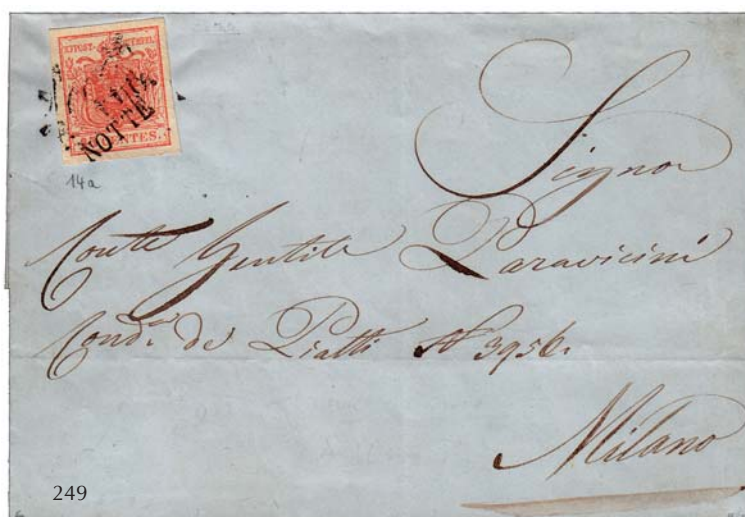 K.K.POST-STEMPEL
NOTTE
CENTES.
14a
Signor
Conte Gentile Paravicini
Cond.ª de Piatti N 3956.
Milano
249